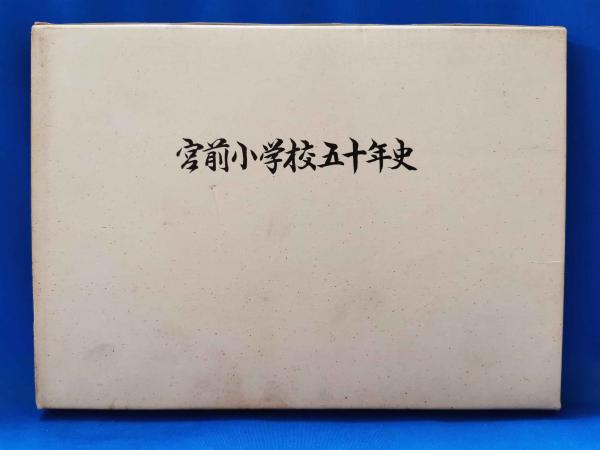 宮前小学校五十年史